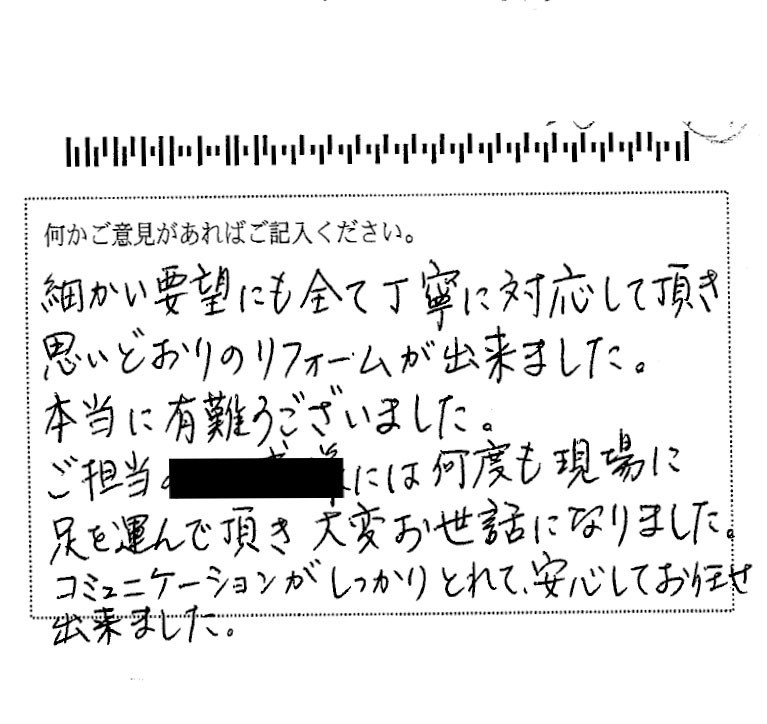 何かご意見があればご記入ください。
細かい要望にも全て丁寧に対応して頂き
思いどおりのリフォームが出来ました。
本当に有難うございました。
ご担当の には何度も現場に
足を運んで頂き 大変お世話になりました。
コミュニケーションがしっかりとれて、安心してお任せ
出来ました。